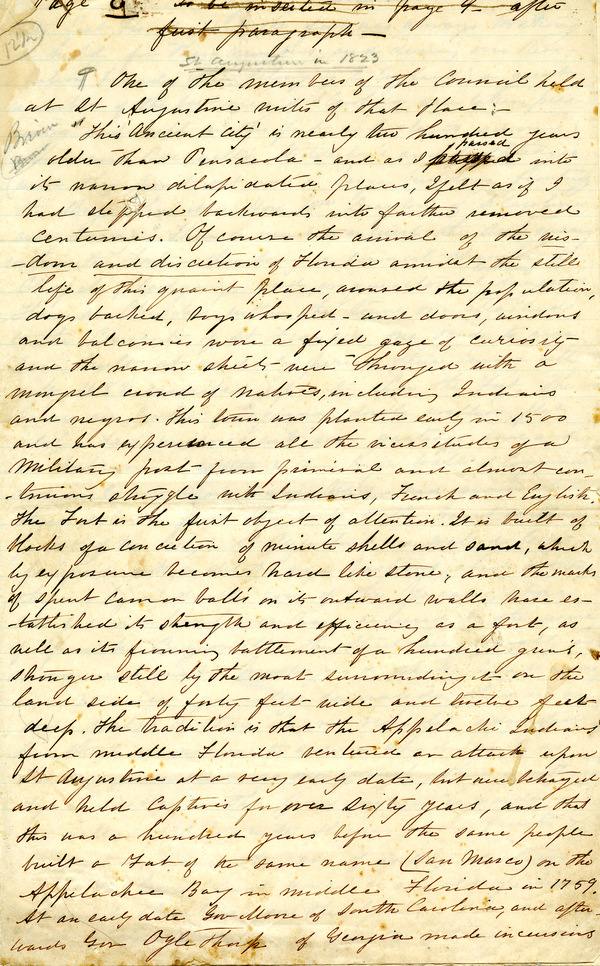 Page 9 to be inserted in page 9 after
first paragraph —
12½
St Augustine in 1823
¶ One of the members of the Council held
at St Augustine writes of that Place; —
"This 'Ancient City' is nearly two hundred years
older than Pensacola — and as I passed into
its narrow dilapidated places, I felt as if I
had stepped backwards into farther removed
centuries. Of course the arrival of the wis-
-dom and discretion of Florida amidst the still
life of this quaint place, aroused the population,
dogs barked, boys whooped — and doors, windows
and balconies wore a fixed gaze of curiosity
and the narrow streets were thronged with a
mongrel crowd of natives, including Indians
and negros. This town was planted early in 1500
and has experienced all the vicissitudes of a
Military post from primival and almost con-
-tinuous struggle with Indians, French and English.
The Fort is the first object of attention. It is built of
blocks of a concretion of minute shells and sand, which
by exposure becomes hard like stone; and the marks
of spent cannon ball's on its outward walls have es-
-tablished its strength and efficiency as a fort, as
well as its frowning battlement of a hundred gun's,
stronger still by the moat surrounding it on the
land side of forty feet wide and twelve feet
deep. The tradition is that the Appelachi Indians
from middle Florida ventured an attack upon
St Augustine at a very early date, but were betrayed
and held Captives for over sixty years, and that
this was a hundred years before the same people
built a Fort of the same name (San Marco) on the
Appelachee Bay in middle Florida in 1759.
At an early date Gov Moore of South Carolina, and after-
wards Gov Ogle Thorp of Georgia made incursions